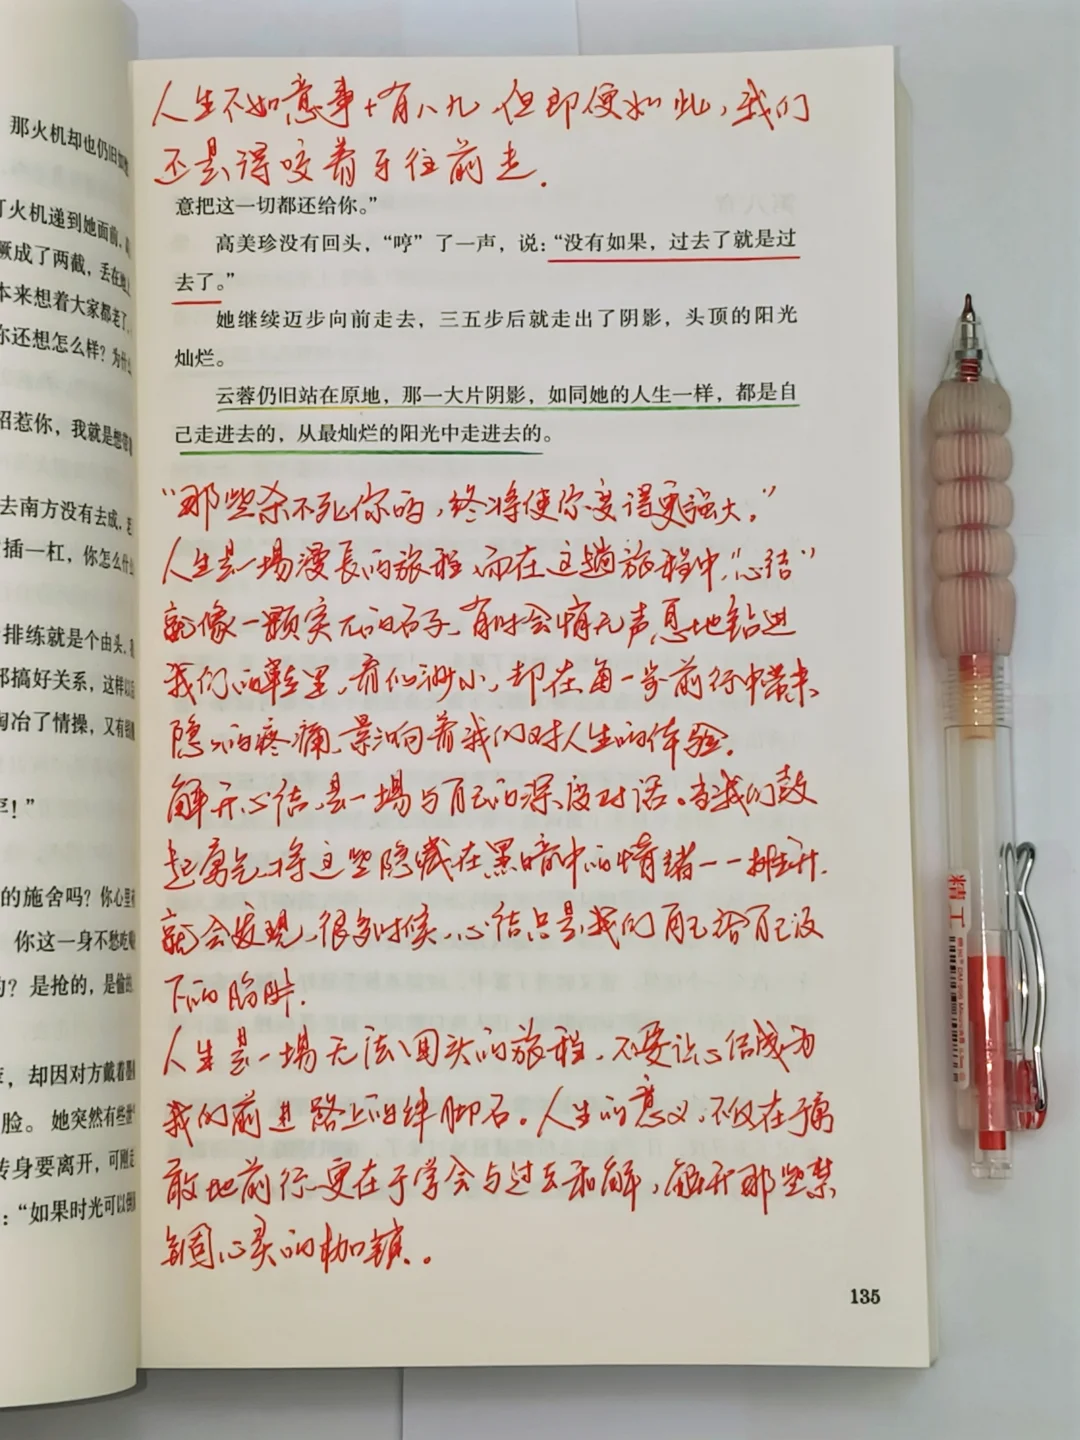 那火机却也仍旧如
火机递到她面前，
成了两截，丢在
本来想着大家都老了
你还想怎么样？为什
招惹你，我就是想
去南方没有去成，
插一杠，你怎么什
排练就是个由头，
搞好关系，这样
陶冶了情操，又有
！”
的施舍吗？你心里
你这一身不愁吃
？是抢的，是偷的
，却因对方戴着
脸。她突然有些
转身要离开，可刚
：“如果时光可以倒
人生不如意事十有八九，但即便如此，我们
还是得咬着牙往前走.
意把这一切都还给你。”
高美珍没有回头，“哼”了一声，说：“没有如果，过去了就是过
去了。”
她继续迈步向前走去，三五步后就走出了阴影，头顶的阳光
灿烂。
云蓉仍旧站在原地，那一大片阴影，如同她的人生一样，都是自
己走进去的，从最灿烂的阳光中走进去的。
“那些杀不死你的，终将使你变得更强大。”
人生是一場漫長的旅程，而在这趟旅程中，“心结”
就像一颗突兀的石子，有时会悄无声息地钻进
我们的鞋里，看似渺小，却在每一步前行中带来
隐隐的疼痛，影响着我们对人生的体验。
解开心结，是一場与自己的深度对话。当我们鼓
起勇气，将这些隐藏在黑暗中的情绪一一摊开，
就会发现，很多时候，心结只是我们自己给自己设
下的陷阱.
人生是一場无法回头的旅程，不要让心结成为
我们前进路上的绊脚石。人生的意义，不仅在于勇
敢地前行，更在于学会与过去和解，解开那些禁
锢心灵的枷锁。
135
精工